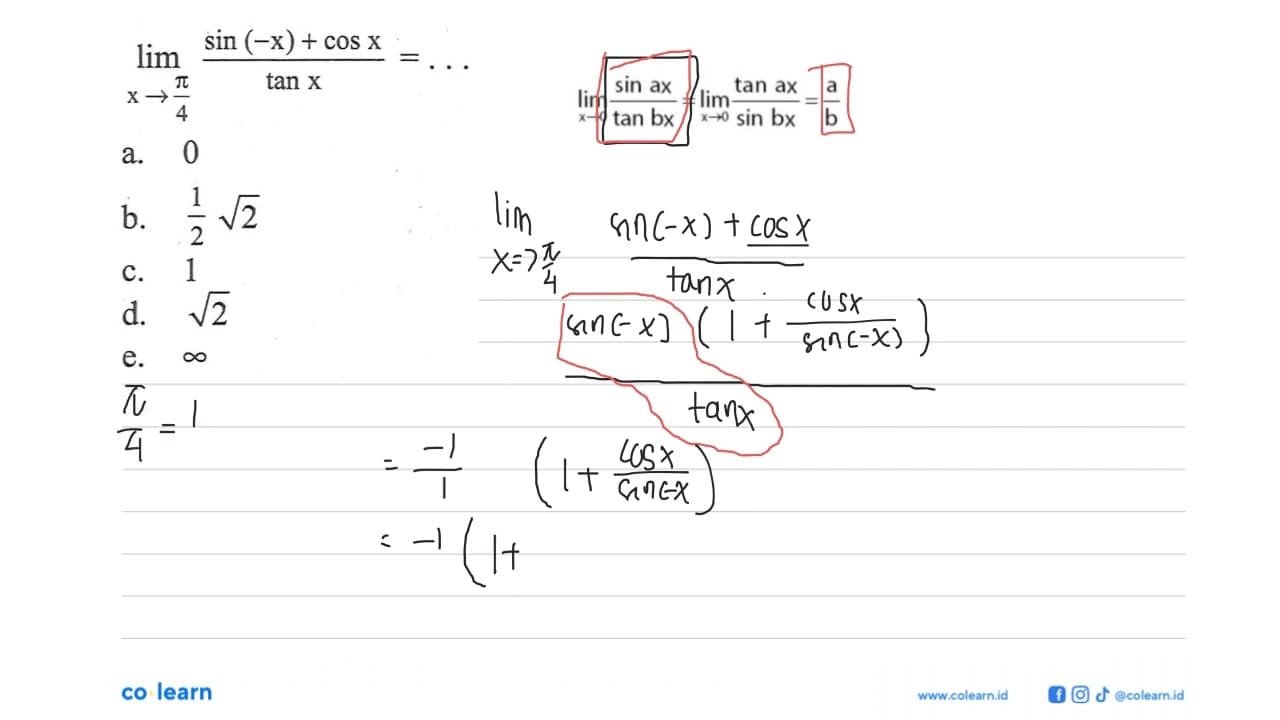 lim x→π/4 (sin (−x) + cos x)/(tan x) = ...
a. 0
b. 1/2 √2
c. 1
d. √2
e. ∞
lim x→0 (sin ax)/(tan bx) = lim x→0 (tan ax)/(sin bx) = a/b
lim x=>π/4 (sin(-x) + cos x)/(tan x)
(sin(-x) (1 + (cos x)/(sin(-x))))/(tan x)
π/4 = 1
= -1/1 (1 + (cos x)/(sin(-x))
= -1 (1+
co learn
www.colearn.id
@colearn.id